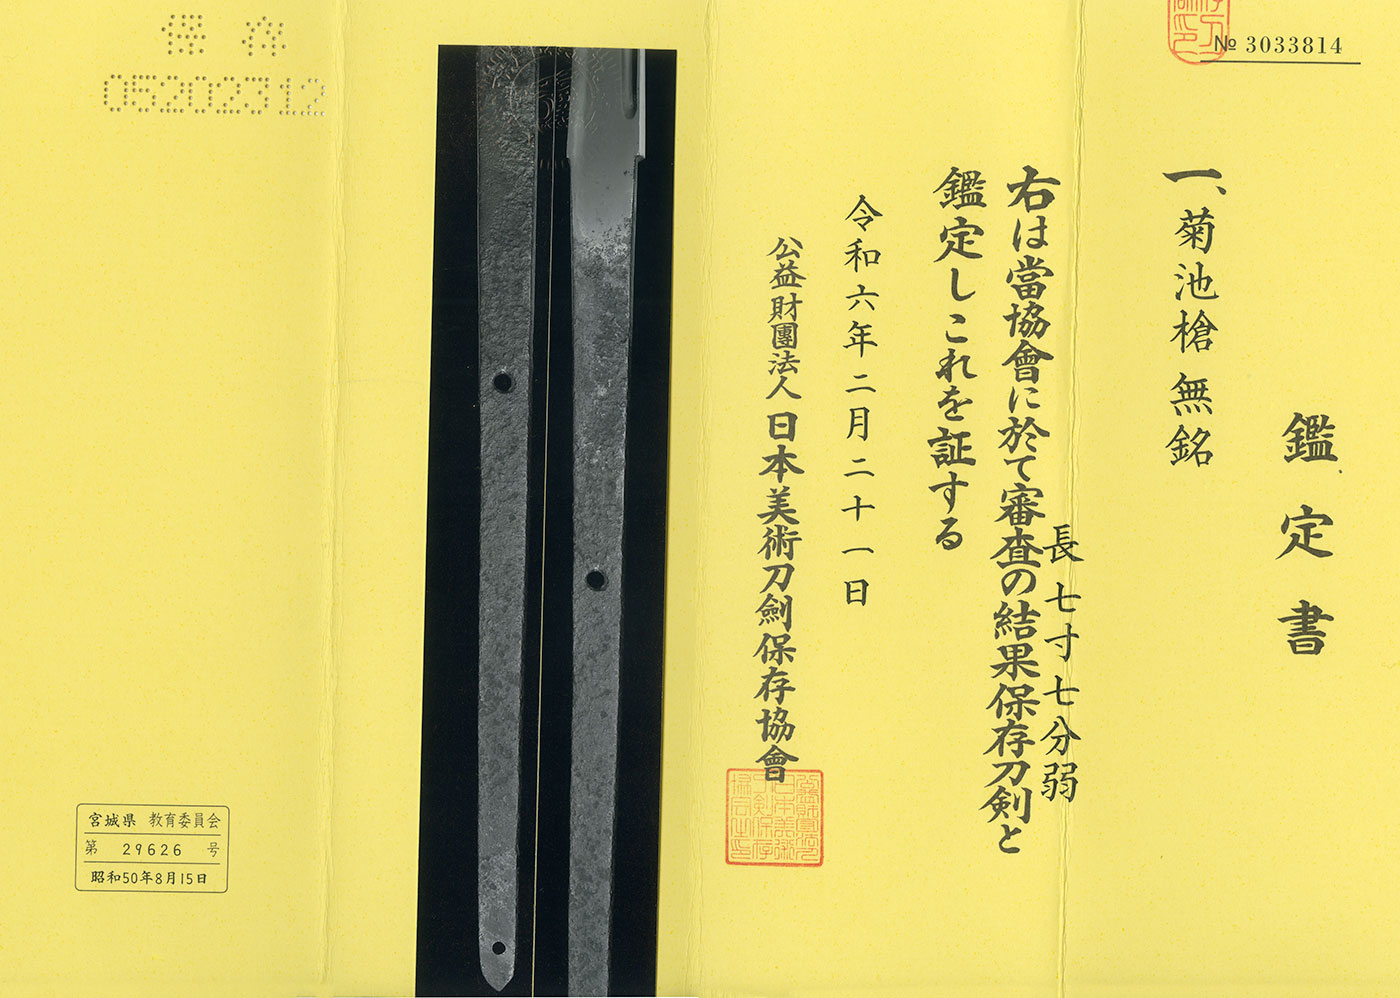 № 3033814
鑑定書
一、菊池槍 無銘
長七寸七分弱
右は當協會に於て審査の結果保存刀剣と
鑑定しこれを証する
令和六年二月二十一日
公益財團法人 日本美術刀劍保存協會
保存
05202312
宮城県 教育委員会
第 29626 号
昭和50年8月15日